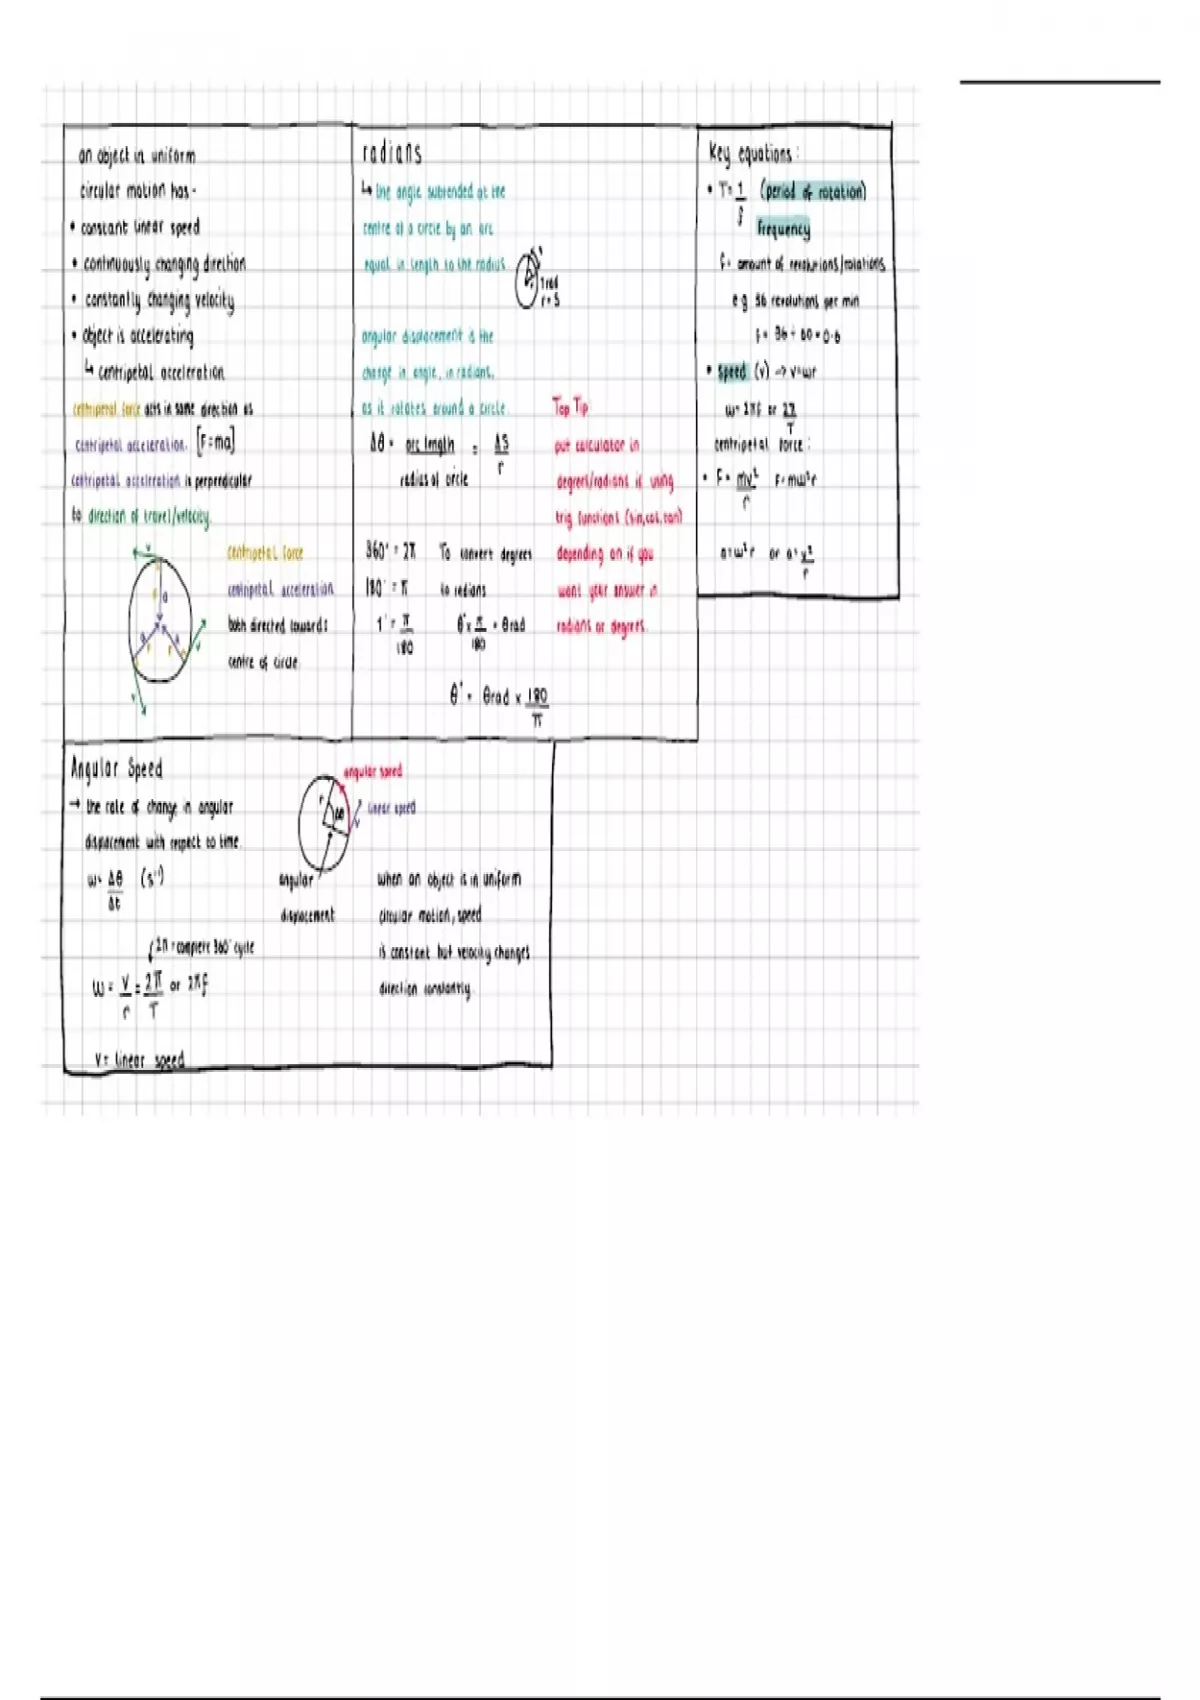 an object in uniform
circular motion has-
• constant linear speed
• continuously changing direction
• constantly changing velocity
• object is accelerating
↳ centripetal acceleration
centripetal force acts in same direction as
centripetal acceleration. [F=ma]
centripetal acceleration is perpendicular
to direction of travel/velocity.
v
centripetal force
centripetal acceleration
both directed towards
centre of circle
F a
a F F a
v
v
radians
↳ the angle subtended at the
centre of a circle by an arc
equal in length to the radius
1 rad
r = S
angular displacement is the
change in angle, in radians,
as it rotates around a circle.
Δθ = arc length = ΔS
radius of circle r
360° = 2π To convert degrees
180° = π to radians
1° = π/180 θ° x π/180 = θrad
θ° = θrad x 180/π
Top Tip:
put calculator in
degrees/radians if using
trig functions (sin, cos, tan)
depending on if you
want your answer in
radians or degrees.
Key equations:
• T = 1/f (period of rotation)
frequency
f = amount of revolutions/rotations
e.g. 36 revolutions per min
f = 36 ÷ 60 = 0.6
• speed (v) → v=wr
w = 2πf or 2π/T
centripetal force:
• F = mv²/r F = mw²r
a = w²r or a = v²/r
Angular Speed
→ the rate of change in angular
displacement with respect to time.
w = Δθ/Δt (s⁻¹)
2π = complete 360° cycle
w = v/r = 2π/T or 2πf
v = linear speed
angular speed
r Δθ
linear speed
v
angular
displacement
when an object is in uniform
circular motion, speed
is constant but velocity changes
direction constantly.